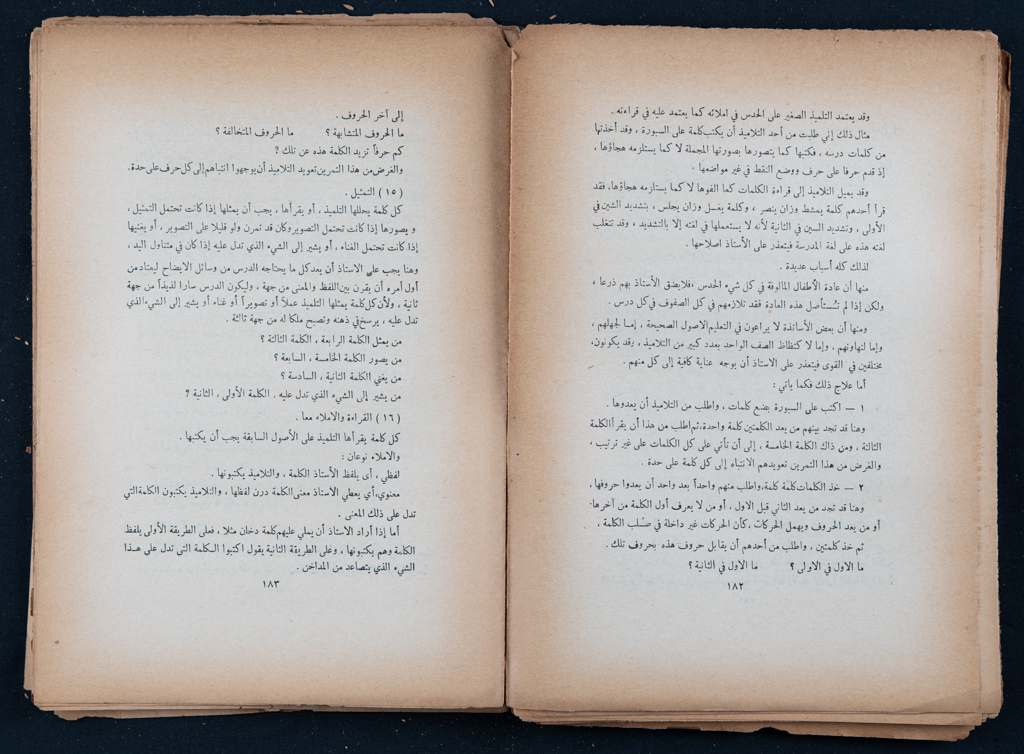 وقد يعتمد التلميذ الصغير على الحدس في املائه كما يعتمد عليه في قراءته .
مثال ذلك إني طلبت من أحد التلاميذ أن يكتب كلمة على السبورة ، وقد أخذتها
من كلمات درسه ، فكتبها كما يتصورها بصورتها المجملة لا كما يستلزمه هجاؤها ،
إذ قدم حرفا على حرف ووضع النقط في غير مواضعها .
وقد يميل التلاميذ إلى قراءة الكلمات كما الفوها لا كما يستلزمه هجاؤها، فقد
قرأ أحدهم كلمة يمشط وزان ينصر ، وكلمة يغسل وزان يجلس ، بتشديد الشين في
الأولى ، وتشديد السين في الثانية لأنه لا يستعملها في لغته إلا بالتشديد ، وقد تتغلب
لغته هذه على لغة المدرسة فيتعذر على الأستاذ اصلاحها .
لذلك كله أسباب عديدة .
منها أن عادة الأطفال المألوفة في كل شيء الحدس ، فلايضق الأستاذ بهم ذرعا ،
ولكن إذا لم تُستأصل هذه العادة فقد تلازمهم في كل الصفوف في كل درس .
ومنها أن بعض الأساتذة لا يراعون في التعليم الاصول الصحيحة ، إما لجهلهم ،
وإما لتهاونهم ، وإما لاكتظاظ الصف الواحد بعدد كبير من التلاميذ ، وقد يكونون،
مختلفين في القوى فيتعذر على الاستاذ أن يوجه عناية كافية إلى كل منهم .
أما علاج ذلك فكما يأتي :
١ — اكتب على السبورة بضع كلمات ، واطلب من التلاميذ أن يعدوها .
وهنا قد تجد بينهم من يعد الكلمتين كلمة واحدة، ثم اطلب من هذا أن يقرأ الكلمة
الثالثة ، ومن ذاك الكلمة الخامسة ، إلى أن تأتي على كل الكلمات على غير ترتيب ،
والغرض من هذا التمرين تعويدهم الانتباه إلى كل كلمة على حدة .
٢ — خذ الكلمات كلمة كلمة، واطلب منهم واحداً بعد واحد أن يعدوا حروفها ،
وهنا قد تجد من يعد الثاني قبل الاول ، أو من لا يعرف أول الكلمة من آخرها،
أو من يعد الحروف ويهمل الحركات ، كأن الحركات غير داخلة في صُلب الكلمة ،
ثم خذ كلمتين ، واطلب من أحدهم أن يقابل حروف هذه بحروف تلك .
ما الاول في الاولى ؟ ما الاول في الثانية ؟
١٨٢
إلى آخر الحروف .
ما الحروف المتشابهة ؟ ما الحروف المتخالفة ؟
كم حرفاً تزيد الكلمة هذه عن تلك ؟
والغرض من هذا التمرين تعويد التلاميذ أن يوجهوا انتباهم إلى كل حرف على حدة.
( ١٥ ) التمثيل .
كل كلمة يحللها التلميذ ، أو يقرأها ، يجب أن يمثلها إذا كانت تحتمل التمثيل ،
و يصورها إذا كانت تحتمل التصوير وكان قد تمرن ولو قليلا على التصوير ، أو يغنيها
إذا كانت تحتمل الغناء ، أو يشير إلى الشيء الذي تدل عليه إذا كان في متناول اليد ،
وهنا يجب على الاستاذ أن يعد كل ما يحتاجه الدرس من وسائل الايضاح ليعتاد من
أول أمره أن يقرن بين اللفظ والمعنى من جهة ، وليكون الدرس سارا لذيذاً من جهة
ثانية ، ولأن كل كلمة يمثلها التلميذ عملاً أو تصويراً أو غناء أو يشير إلى الشيء الذي
تدل عليه ، يرسخ في ذهنه وتصبح ملكا له من جهة ثالثة .
من يمثل الكلمة الرابعة ، الكلمة الثالثة ؟
من يصور الكلمة الخامسة ، السابعة ؟
من يغني الكلمة الثانية ، السادسة ؟
من يشير إلى الشيء الذي تدل عليه . الكلمة الأولى ، الثانية ؟
( ١٦ ) القراءة والاملاء معا .
كل كلمة يقرأها التلميذ على الأصول السابقة يجب أن يكتبها .
والاملاء نوعان :
لفظي ، أى يلفظ الأستاذ الكلمة ، والتلاميذ يكتبونها .
معنوي، أي يعطي الاستاذ معنى الكلمة دون لفظها ، والتلاميذ يكتبون الكلمة التي
تدل على ذلك المعنى .
أما إذا أراد الاستاذ أن يملي عليهم كلمة دخان مثلا ، فعلى الطريقة الأولى يلفظ
الكلمة وهم يكتبونها ، وعلى الطريقة الثانية يقول اكتبوا الكلمة التى تدل على هذا
الشيء الذي يتصاعد من المداخن .
١٨٣